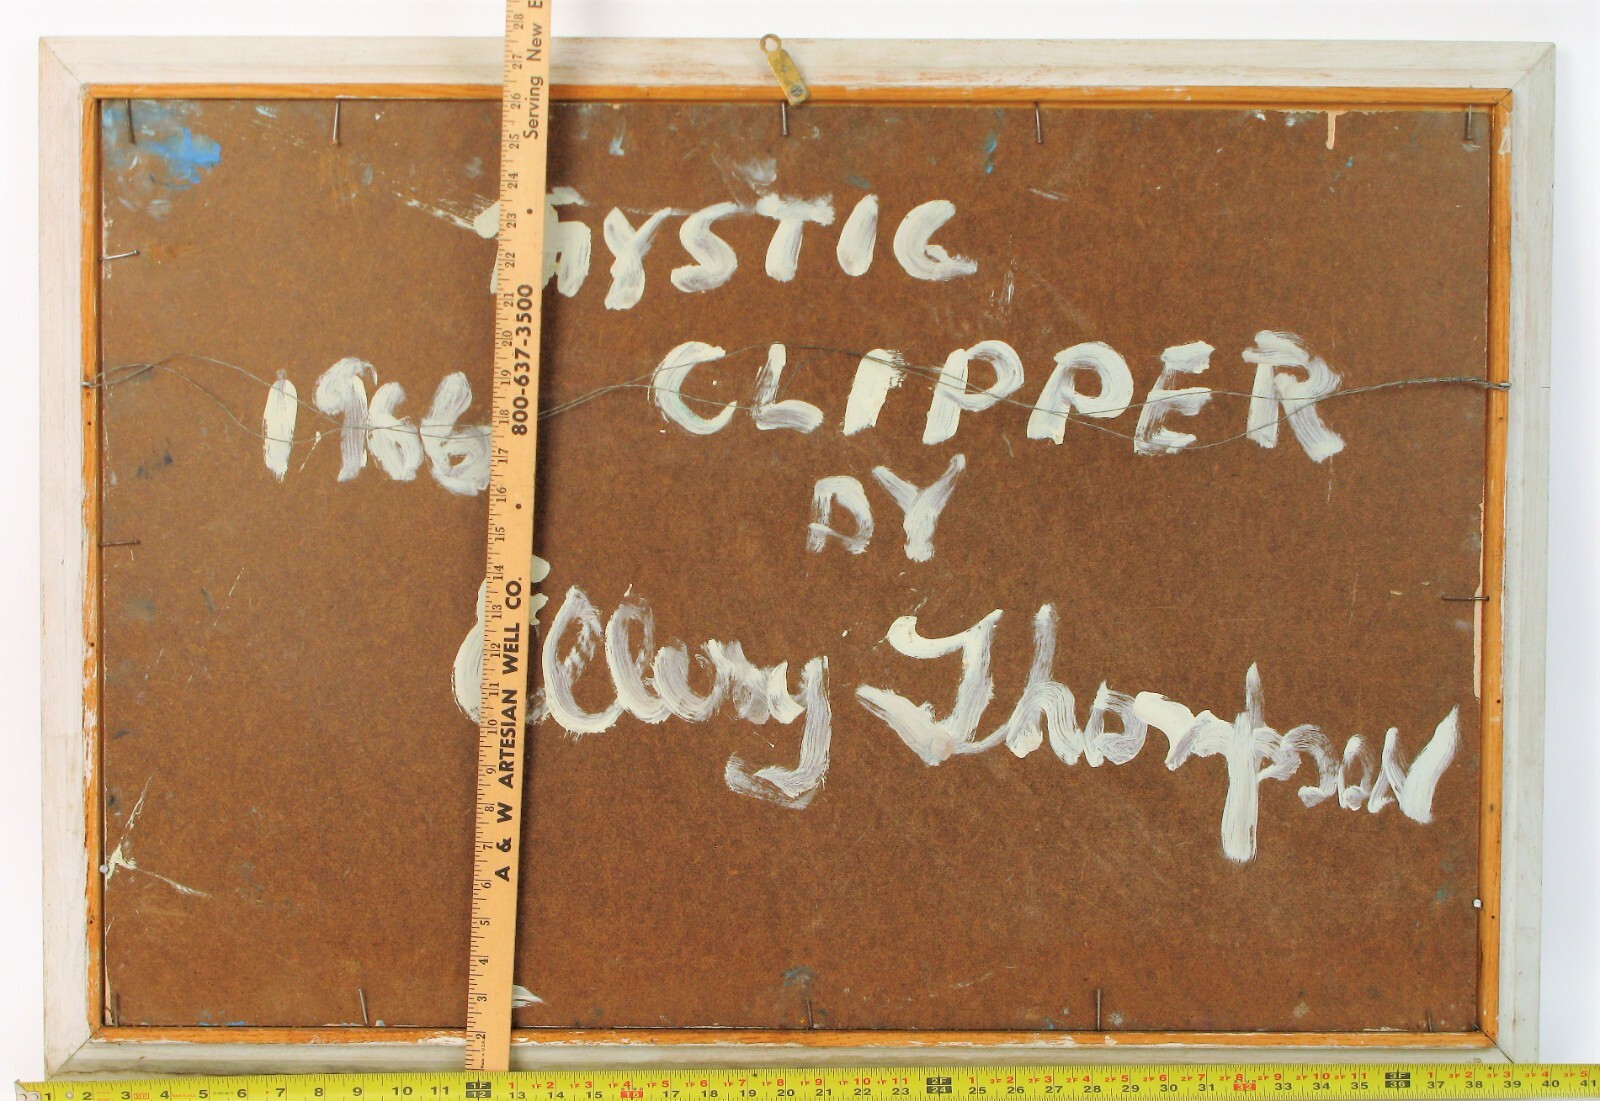 MYSTIC
1966 CLIPPER
BY
Ellery Thompson
A & W ARTESIAN WELL CO. • 800-637-3500 • Serving New E
2 3 4 5 6 7 8 9 10 11 12 13 14 15 16 17 18 19 20 21 22 23 24 25 26 27 28
1 2 3 4 5 6 7 8 9 10 11 1F 1 1F2 1F3 1F4 1F5 1F6 1F7 1F8 1F9 1F10 1F11 2F 1 2F2 2F3 2F4 2F5 2F6 2F7 2F8 2F9 2F10 2F11 3F 1 3F2 3F3 3F4 3F5
12 13 14 15 16 17 18 19 20 21 22 23 24 25 26 27 28 29 30 31 32 33 34 35 36 37 38 39 40 41